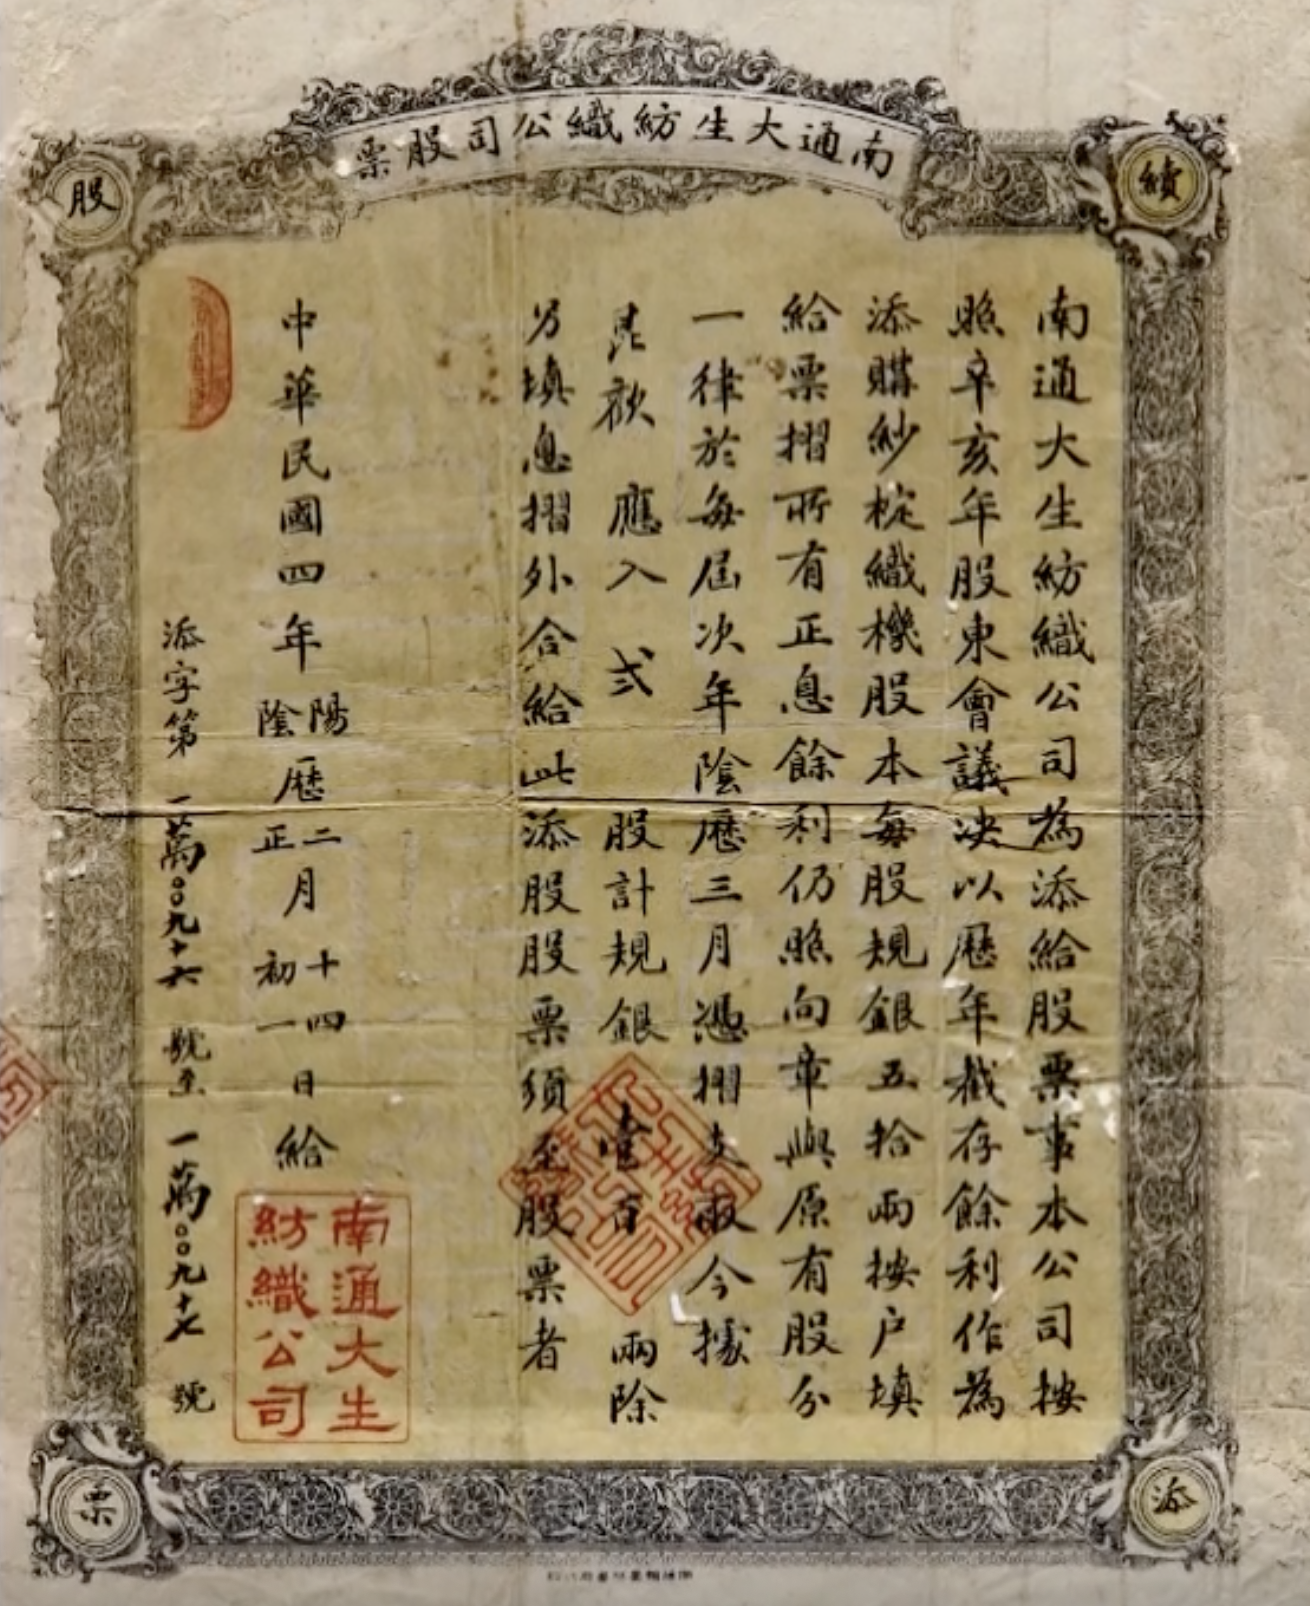 南通大生紡織公司股票
續
添
股
票
南通大生紡織公司為添給股票事本公司按
照辛亥年股東會議決以歷年截存餘利作為
添購紗椗織機股本每股規銀五拾兩按户填
給票摺所有正息餘利仍照向章與原有股分
一律於每屆次年陰歷三月憑摺支取今據
應入 弍 股計規銀 壹百 兩除
另填息摺外合給此添股股票須至股票者
中華民國四年陽陰歷二正月十四初一日給
添字第 一萬〇〇九十六 號至 一萬〇〇九十七 號
南通大生
紡織公司